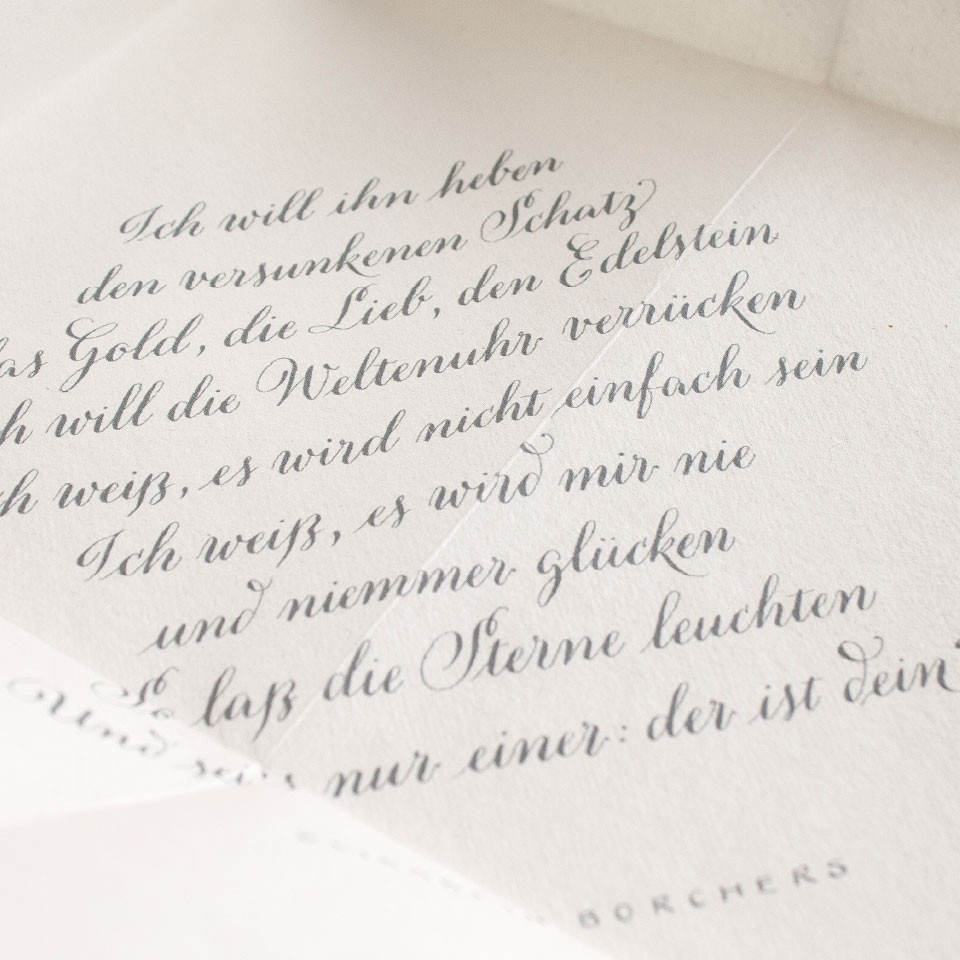 Ich will ihn heben
den versunkenen Schatz
das Gold, die Lieb, den Edelstein
ch will die Weltenuhr verrücken
ch weiß, es wird nicht einfach sein
Ich weiß, es wird mir nie
und niemmer glücken
So laß die Sterne leuchten
Und sei's nur einer: der ist dein
BORCHERS